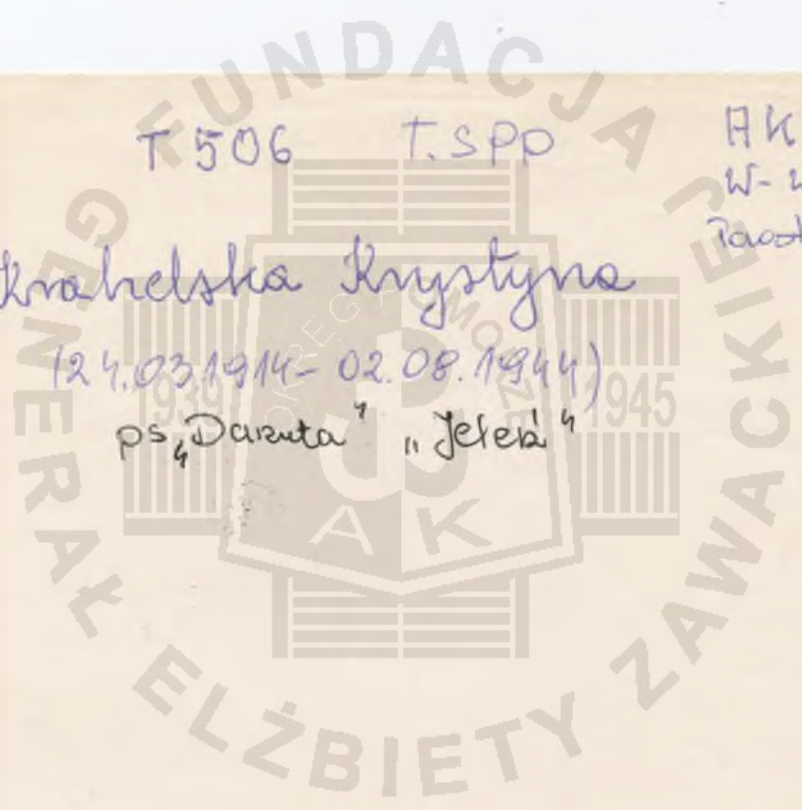 T 506 T. SPP AK
W-
Krahelska Krystyna
(24.03.1914- 02.08.1944)
ps „Danuta" „Jeleń"
FUNDACJA GENERAŁ ELŻBIETY ZAWACKIEJ
OKRĘG POMORZE
1939 1945
AK